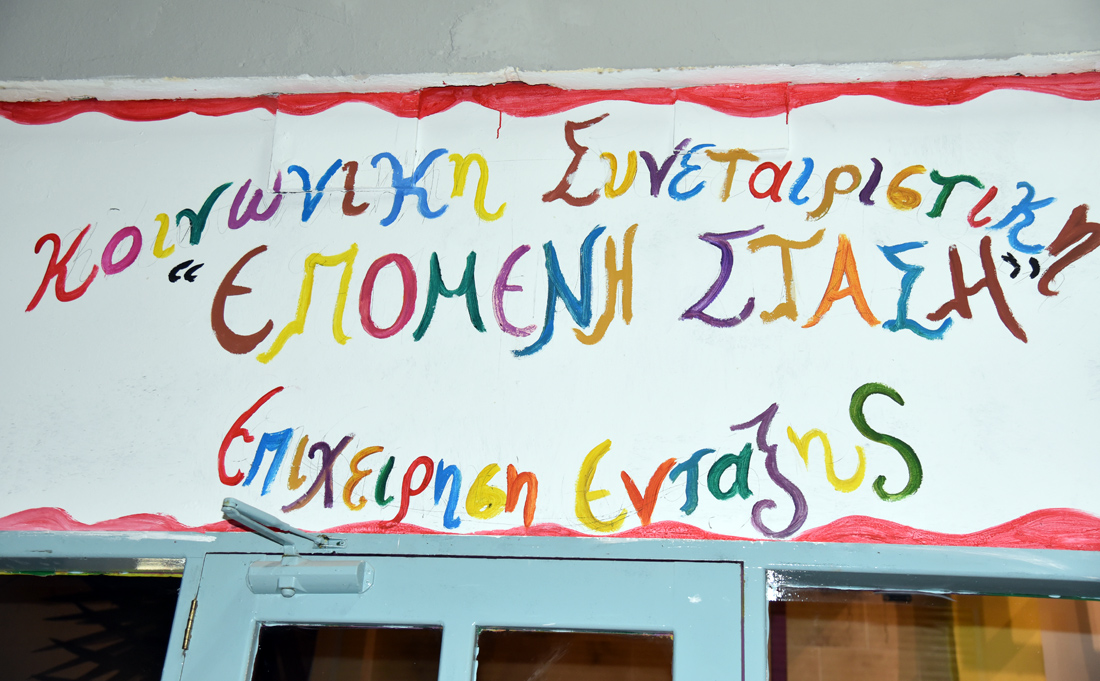 Κοινωνικη Συνεταιριστικη
“ΕΠΟΜΕΝΗ ΣΤΑΣΗ”
Επιχειρηση Ενταξης